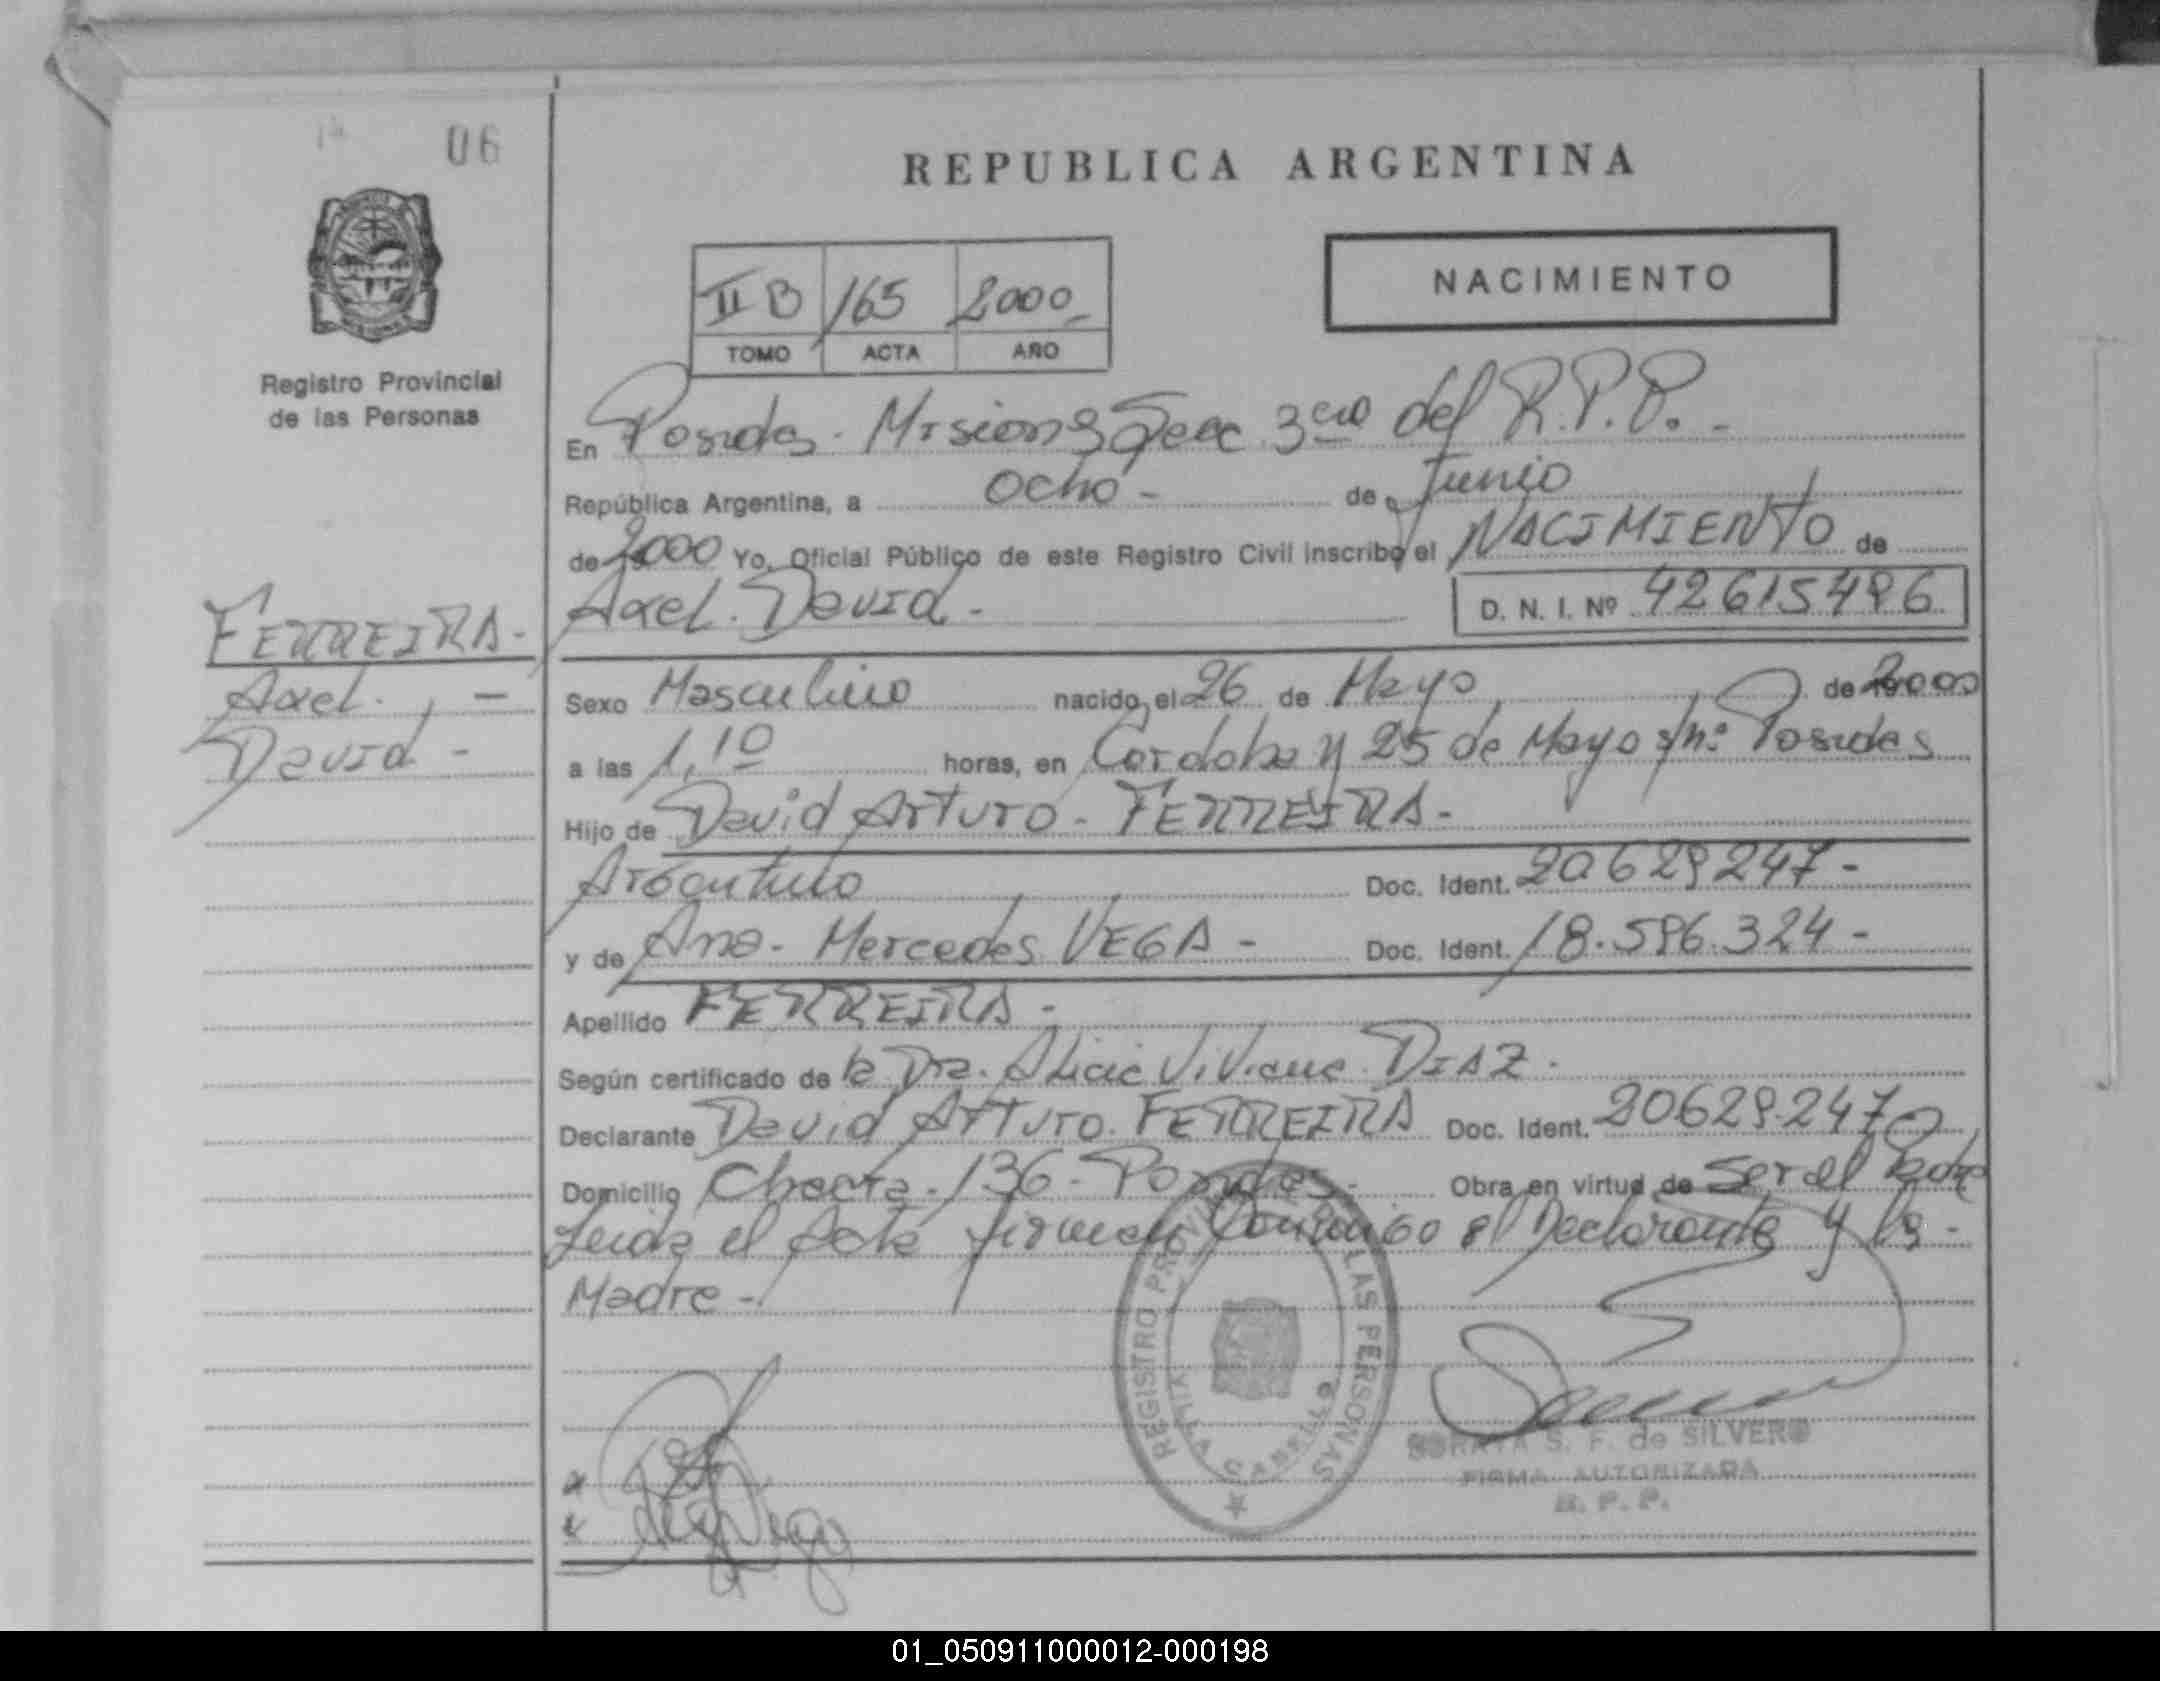 06
REPUBLICA ARGENTINA
NACIMIENTO
II B 165 2000
TOMO ACTA AÑO
Registro Provincial
de las Personas
En Posadas - Misiones Secc 3era del R.P.P. -
República Argentina, a ocho - de Junio
de 2000 Yo, Oficial Público de este Registro Civil inscribo el NACIMIENTO de
Axel. David - D. N. I. Nº 42615496
FERREIRA -
Axel. , -
David -
Sexo Masculino nacido, el 26 de Mayo de 2000
a las 1,10 horas, en Cordoba y 25 de Mayo s/nº Posadas
Hijo de David Arturo - FERREIRA -
Argentino Doc. Ident. 20629247 -
y de Ana - Mercedes VEGA - Doc. Ident. 18.596.324 -
Apellido FERREIRA -
Según certificado de la Dra. Alicia Viviana DIAZ -
Declarante David Arturo FERREIRA Doc. Ident. 20629.247
Domicilio Chacra - 136 - Posadas - Obra en virtud de Ser el Padre
Leida el Acta firman Conmigo el Declarante y la -
Madre -
REGISTRO PROVINCIAL DE LAS PERSONAS
SORAYA S. F. de SILVERO
FIRMA AUTORIZADA
R. P. P.
01_050911000012-000198